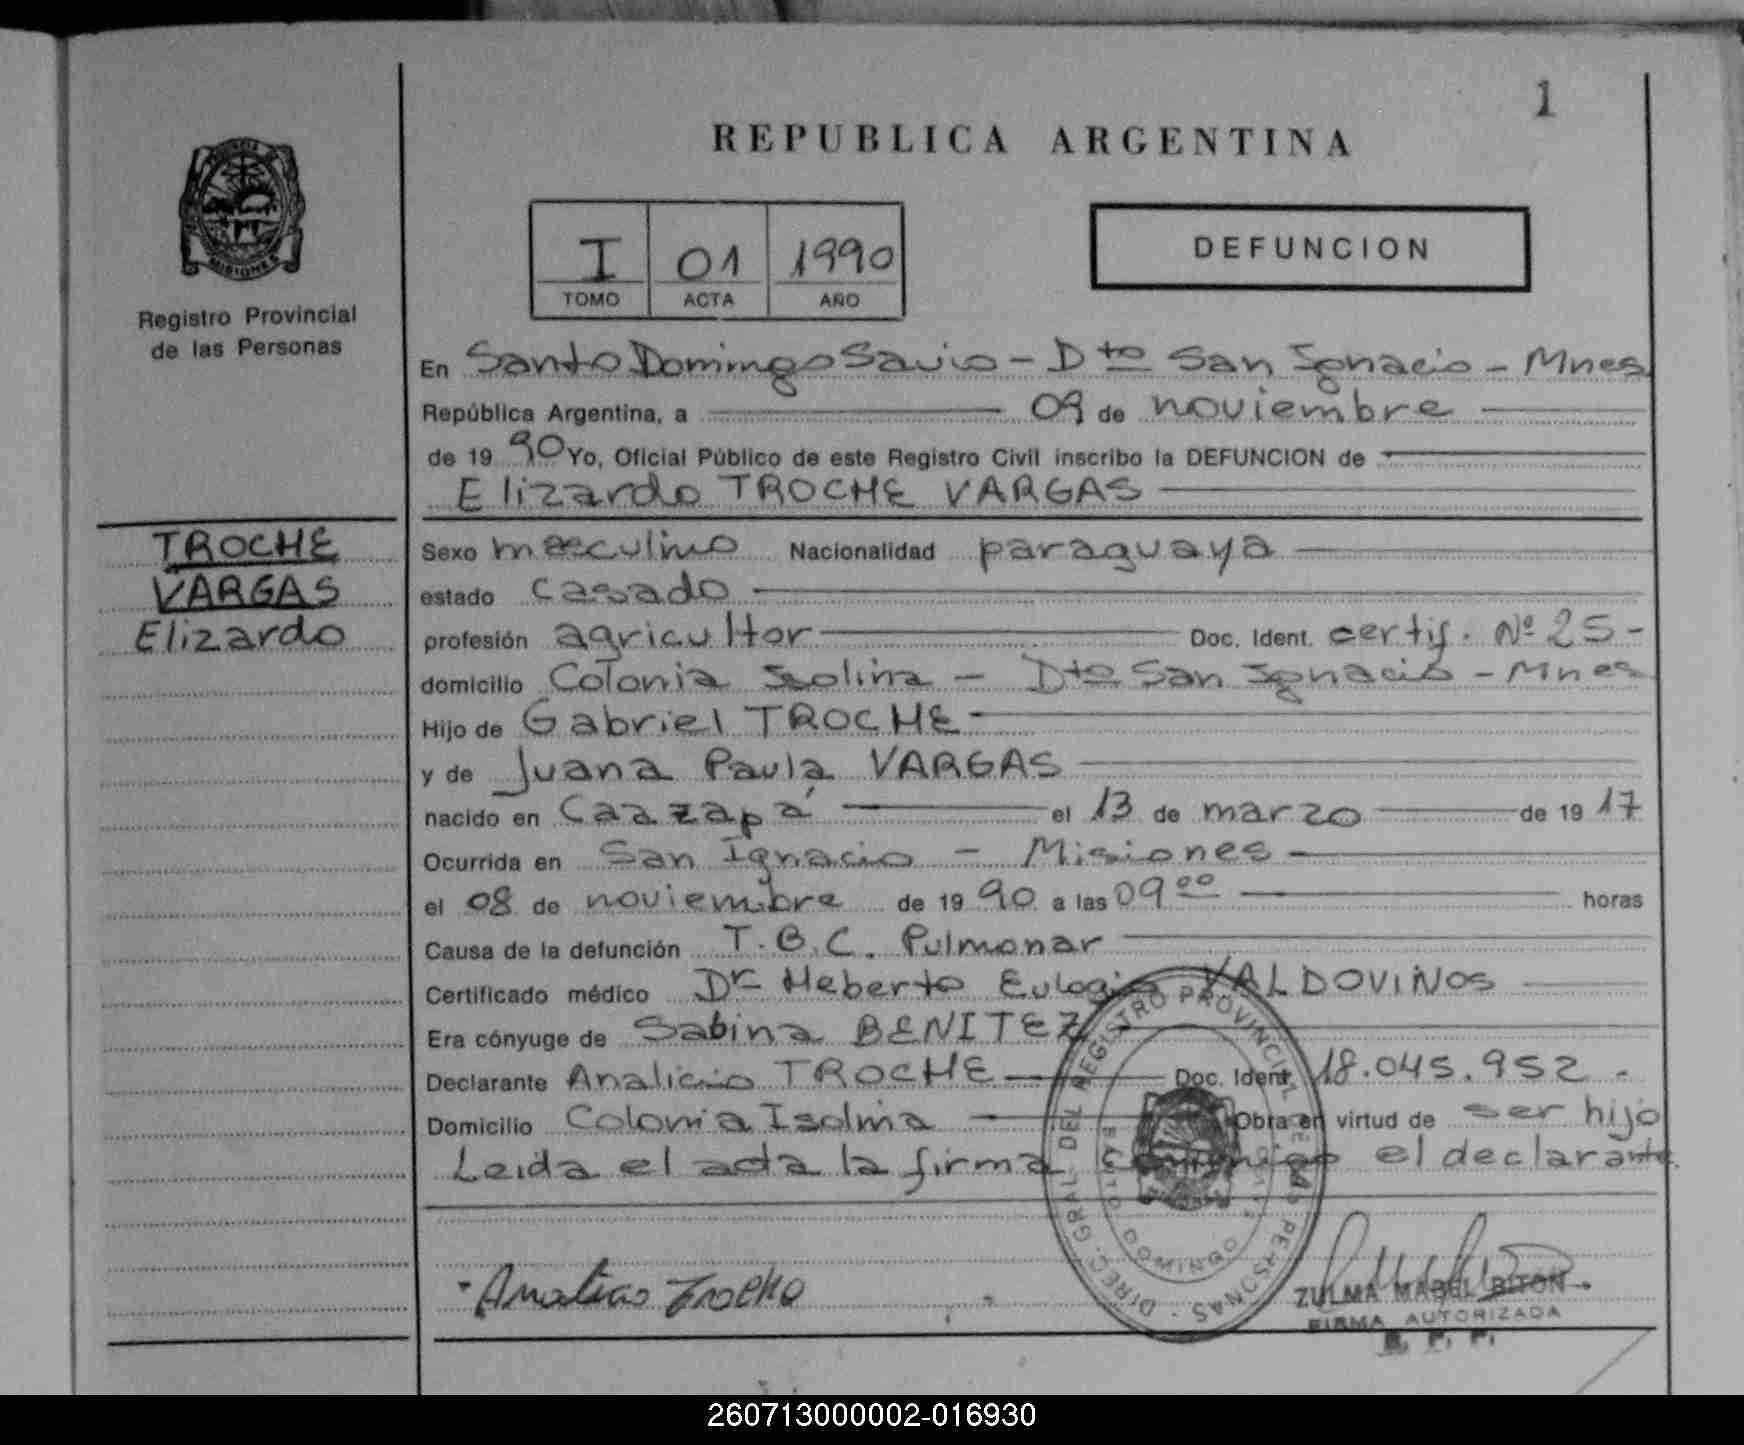 1
REPUBLICA ARGENTINA
MISIONES
Registro Provincial
de las Personas
I 01 1990
TOMO ACTA AÑO
DEFUNCION
En Santo Domingo Savio - Dto San Ignacio - Mnes
República Argentina, a 09 de noviembre
de 19 90 Yo, Oficial Público de este Registro Civil inscribo la DEFUNCION de
Elizardo TROCHE VARGAS
TROCHE
VARGAS
Elizardo
Sexo masculino Nacionalidad paraguaya
estado casado
profesión agricultor Doc. Ident. certif. Nº 25-
domicilio Colonia - Dto San Ignacio - Mnes
Hijo de Gabriel TROCHE
y de Juana Paula VARGAS
nacido en Caazapá el 13 de marzo de 19 17
Ocurrida en San Ignacio - Misiones
el 08 de noviembre de 19 90 a las 09 00 horas
Causa de la defunción T.B.C. Pulmonar
Certificado médico Dr Heberto Eulogio VALDOVINOS
Era cónyuge de Sabina BENITEZ
Declarante Analicio TROCHE Doc. Ident. 18.045.952.
Domicilio Colonia Isolina Obra en virtud de ser hijo
Leida el acta la firma conmigo el declarante.
DIREC. GRAL. DEL REGISTRO PROVINCIAL DE LAS PERSONAS
DOMINGO
Analicio Troche
ZULMA MABEL BITON
FIRMA AUTORIZADA
R. P. P.
260713000002-016930